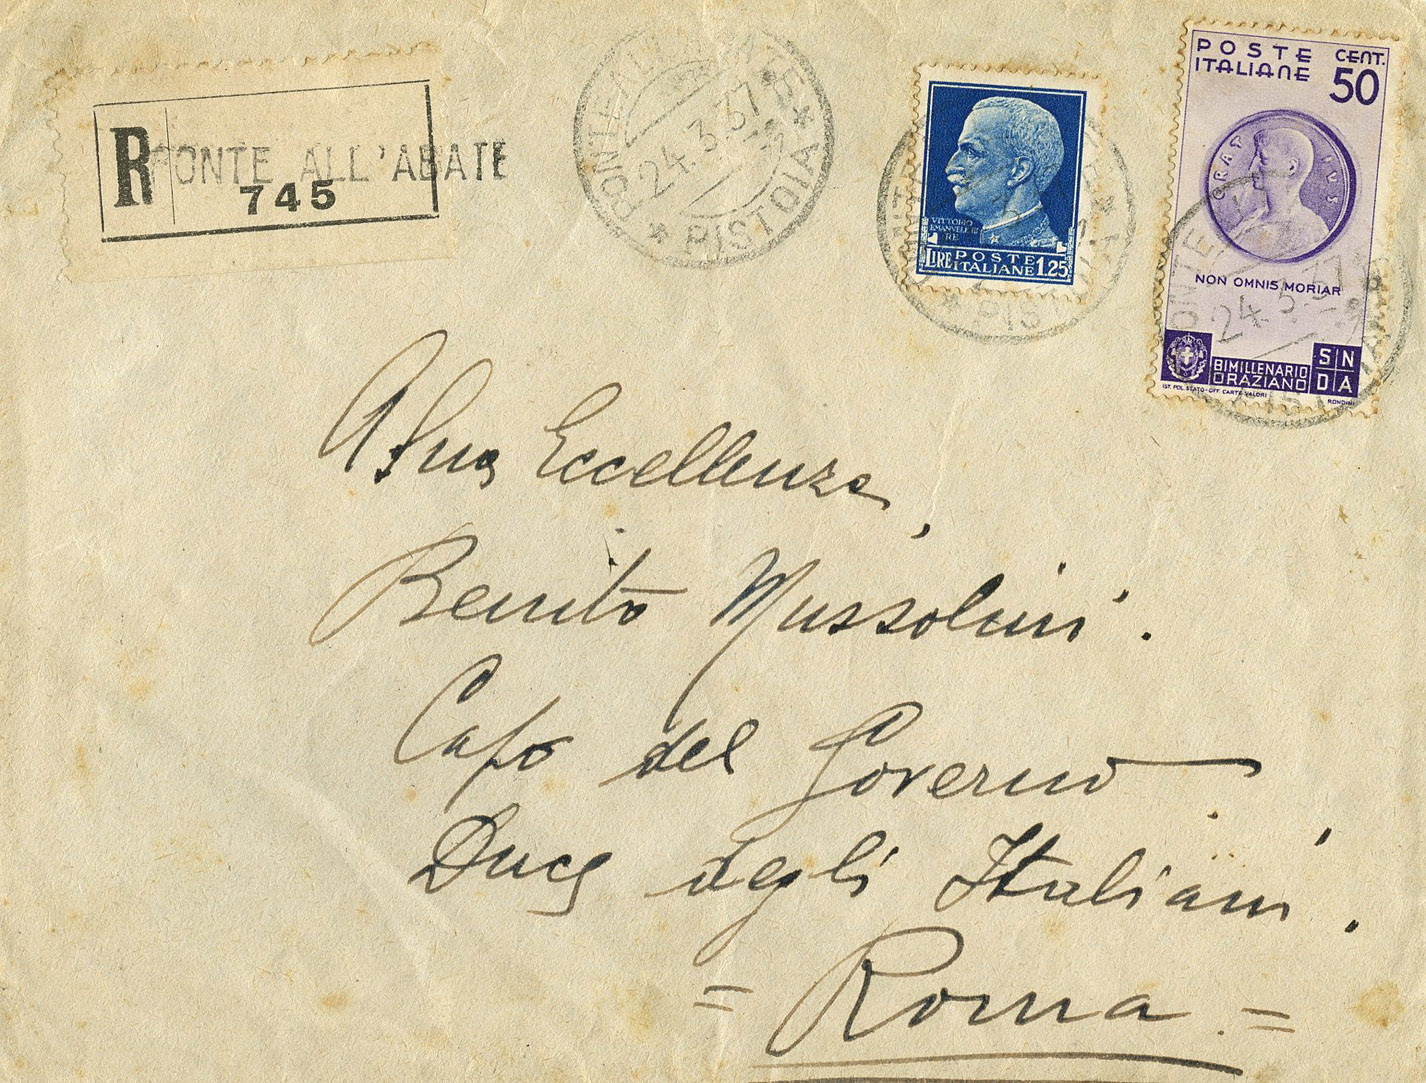 R PONTE ALL'ABATE
745
PONTE ALL'ABATE
24.3.37
* PISTOIA *
VITTORIO
EMANUELE III
RE
LIRE POSTE ITALIANE 1.25
* PISTOIA *
POSTE ITALIANE
CENT. 50
ORAT IVS
NON OMNIS MORIAR
24.3.37
BIMILLENARIO ORAZIANO
SNDA
IST. POL. STATO-OFF. CARTE-VALORI
RONDINI
A Sua Eccellenza,
Benito Mussolini.
Capo del Governo
Duce degli Italiani.
= Roma =